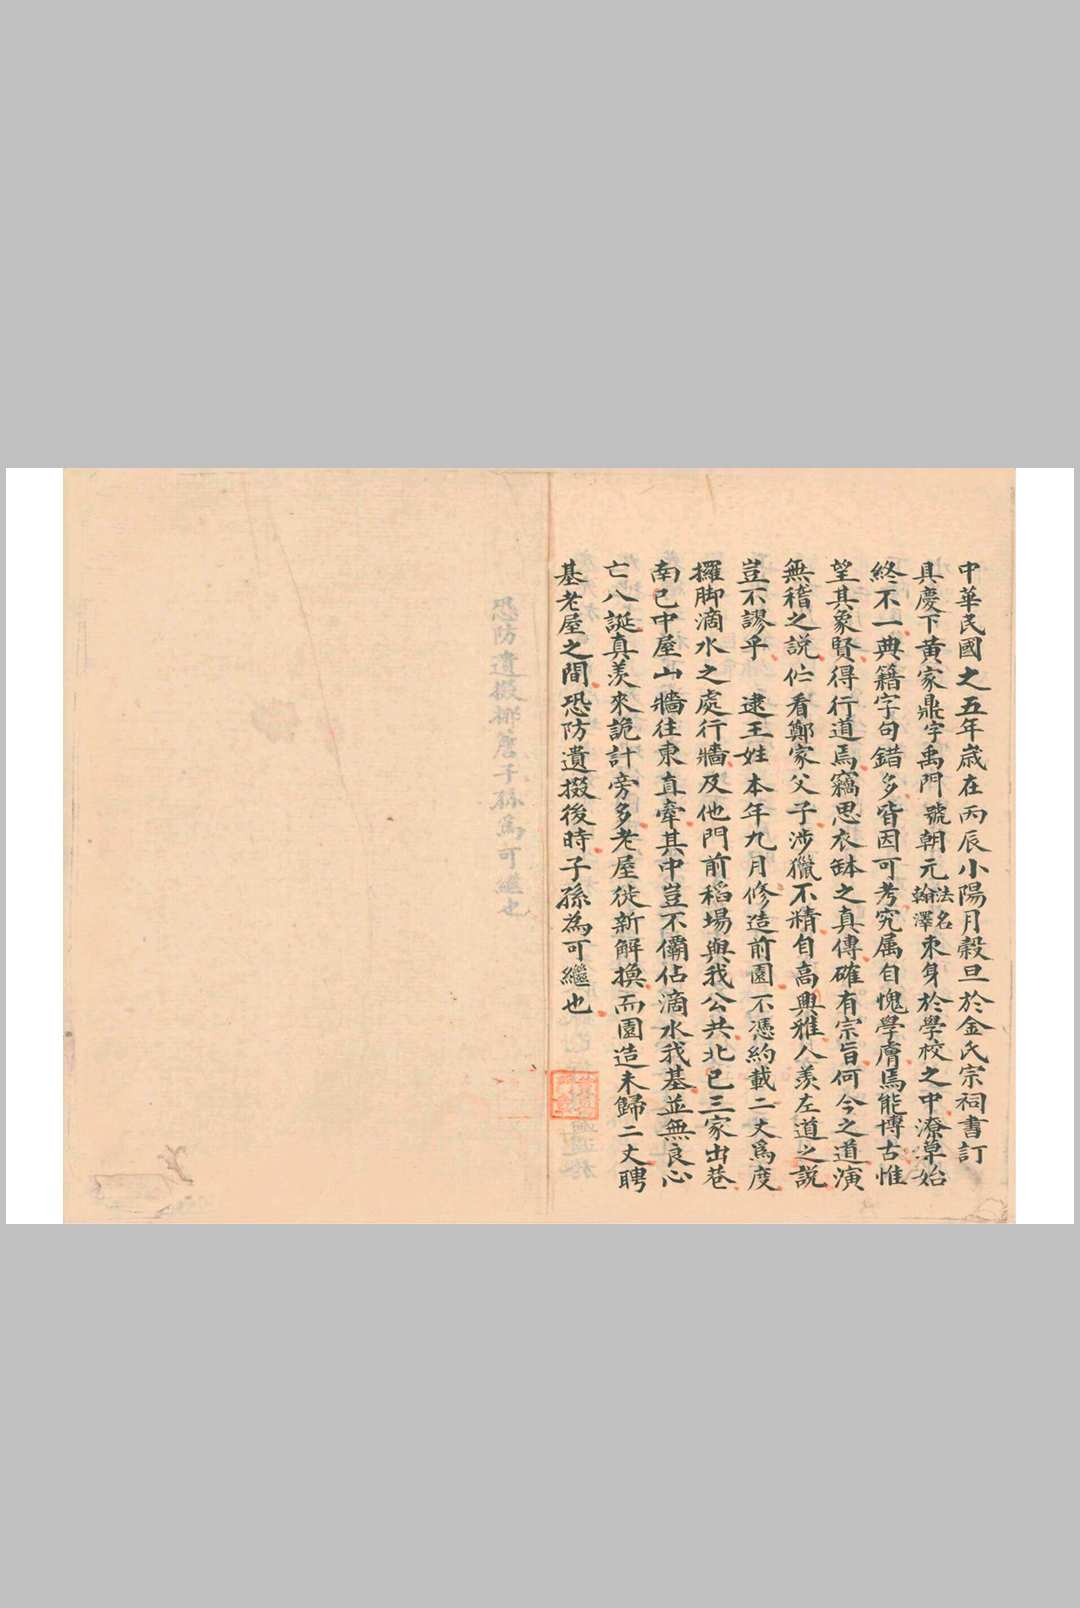 中華民國之五年歲在丙辰小陽月穀旦於金氏宗祠書訂
具慶下黃家鼎字禹門號朝元法名翰澤束身於學校之中潦草始
終不一典籍字句錯多皆因可考究属自愧學膚焉能博古惟
望其象賢得行道焉竊思衣缽之真傳確有宗旨何今之道演
無稽之說伫看鄭家父子涉獵不精自高興雅人羨左道之說
豈不謬乎 逮王姓本年九月修造前園不憑約載二丈爲度
攞脚滴水之處行牆及他門前稻場與我公共北已三家出巷
南已中屋山牆往東直牽其中豈不霸佔滴水我基並無良心
亡八誕真羨來詭計旁多老屋徙新解換而園造未歸二丈聘
基老屋之間恐防遺掇後時子孫為可繼也
恐防遺掇後子孫為可繼也